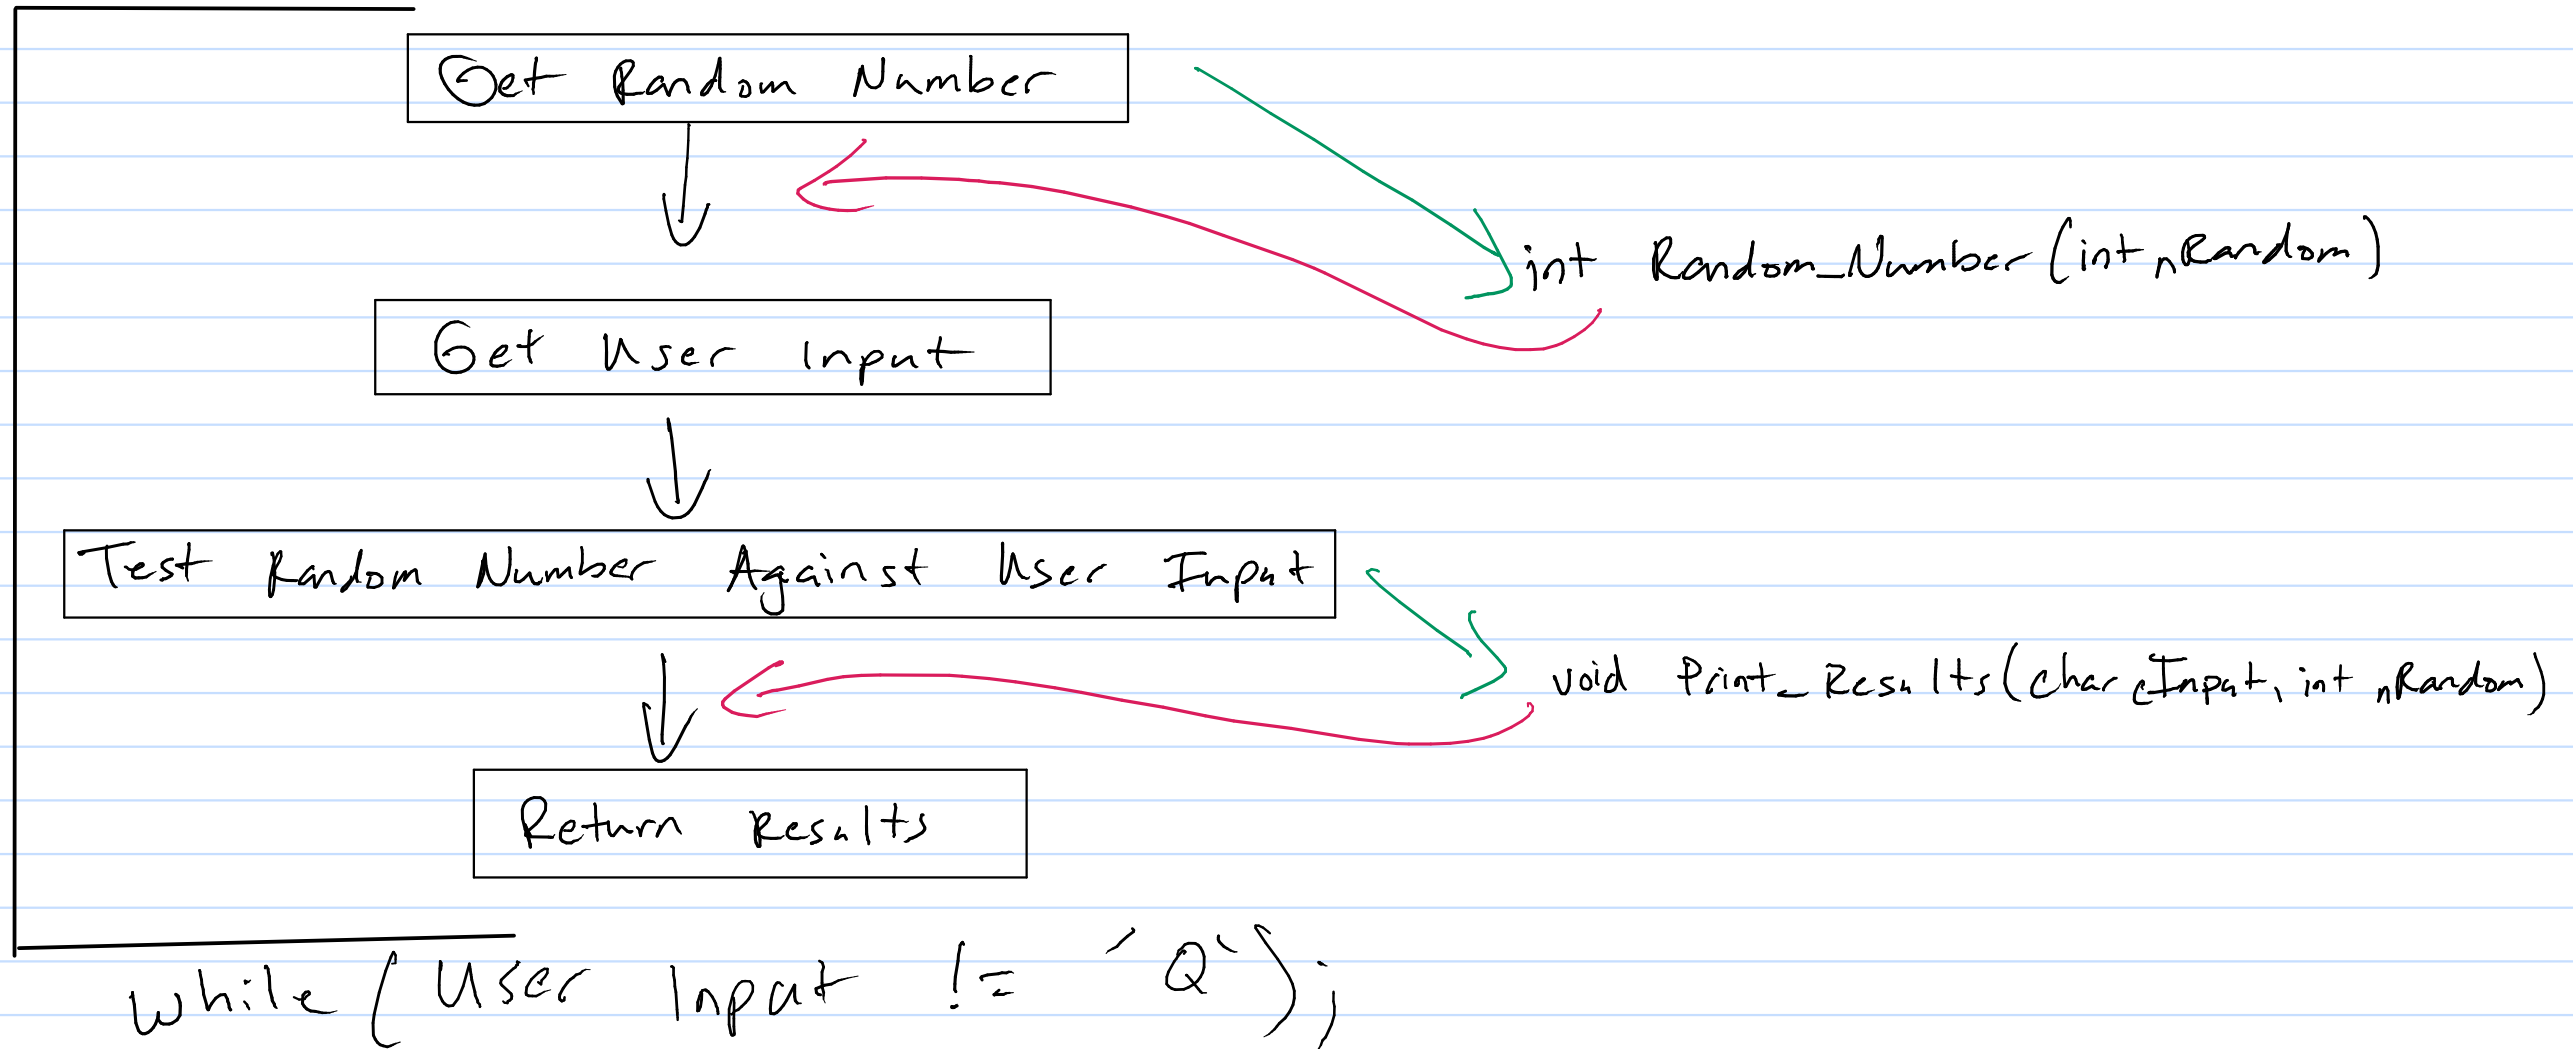 Get Random Number
int Random_Number(int nRandom)
Get User Input
Test Random Number Against User Input
void Print_Results(char cInput, int nRandom)
Return Results
while(User Input != 'Q');